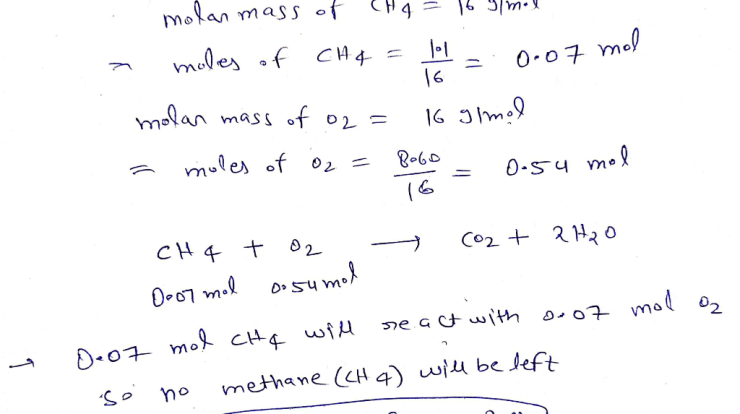 molar mass of CH4 = 16 g/mol
⇒ moles of CH4 = 1.1/16 = 0.07 mol
molar mass of O2 = 16 g/mol
= moles of O2 = 8.60/16 = 0.54 mol
CH4 + O2 → CO2 + 2H2O
0.07 mol 0.54 mol
→ 0.07 mol CH4 will react with 0.07 mol O2
so no methane (CH4) will be left